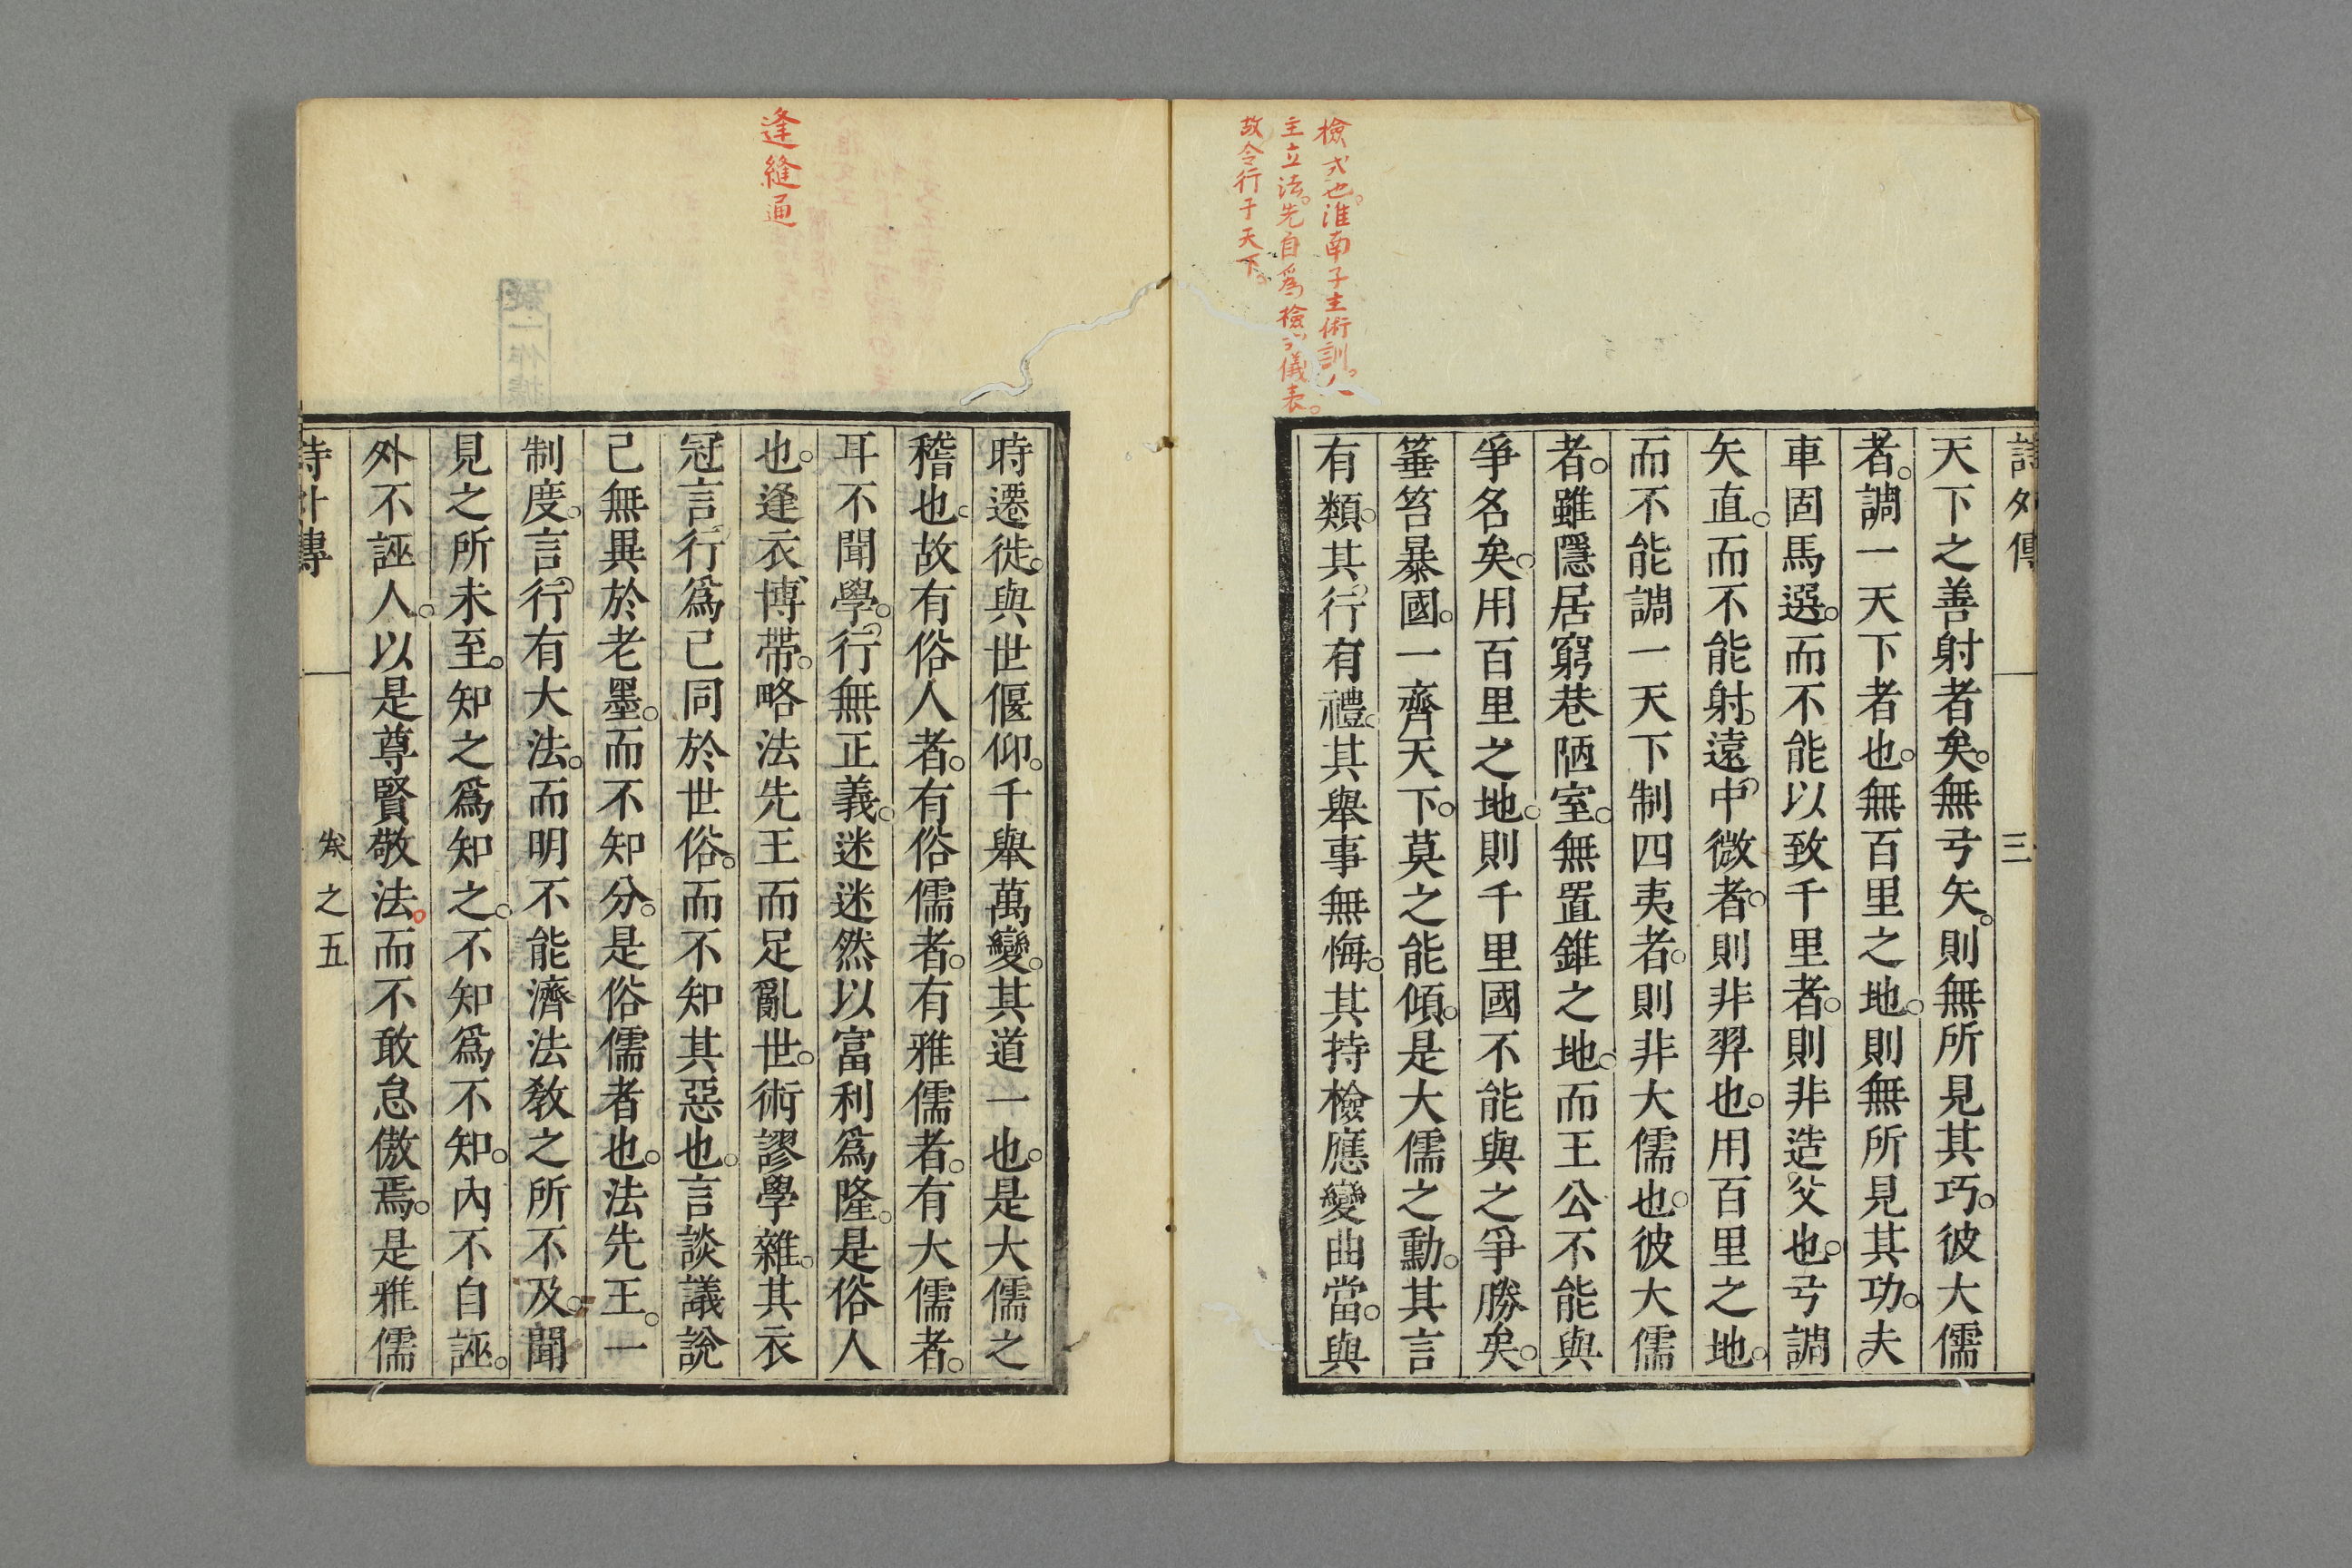 檢式也。淮南子主術訓。人
主立法。先自爲檢式儀表。
故令行于天下。
詩外傳 三
天下之善射者矣。無弓矢。則無所見其巧。彼大儒
者。調一天下者也。無百里之地。則無所見其功。夫
車固馬選。而不能以致千里者。則非造父也。弓調
矢直。而不能射遠中微者。則非羿也。用百里之地。
而不能調一天下制四夷者。則非大儒也。彼大儒
者。雖隱居窮巷陋室。無置錐之地。而王公不能與
爭名矣。用百里之地。則千里國不能與之爭勝矣。
箠笞暴國。一齊天下。莫之能傾。是大儒之勳。其言
有類。其行有禮。其舉事無悔。其持檢應變曲當。與
逢縫通
時遷徙。與世偃仰。千舉萬變。其道一也。是大儒之
稽也。故有俗人者。有俗儒者。有雅儒者。有大儒者。
耳不聞學。行無正義。迷迷然以富利爲隆。是俗人
也。逢衣博帶。略法先王而足亂世。術謬學雜。其衣
冠言行爲已同於世俗。而不知其惡也。言談議說
已無異於老墨。而不知分。是俗儒者也。法先王。一
制度。言行有大法。而明不能濟法敎之所不及。聞
見之所未至。知之爲知之。不知爲不知。內不自誣。
外不誣人。以是尊賢敬法。而不敢怠傲焉。是雅儒
詩外傳 卷之五